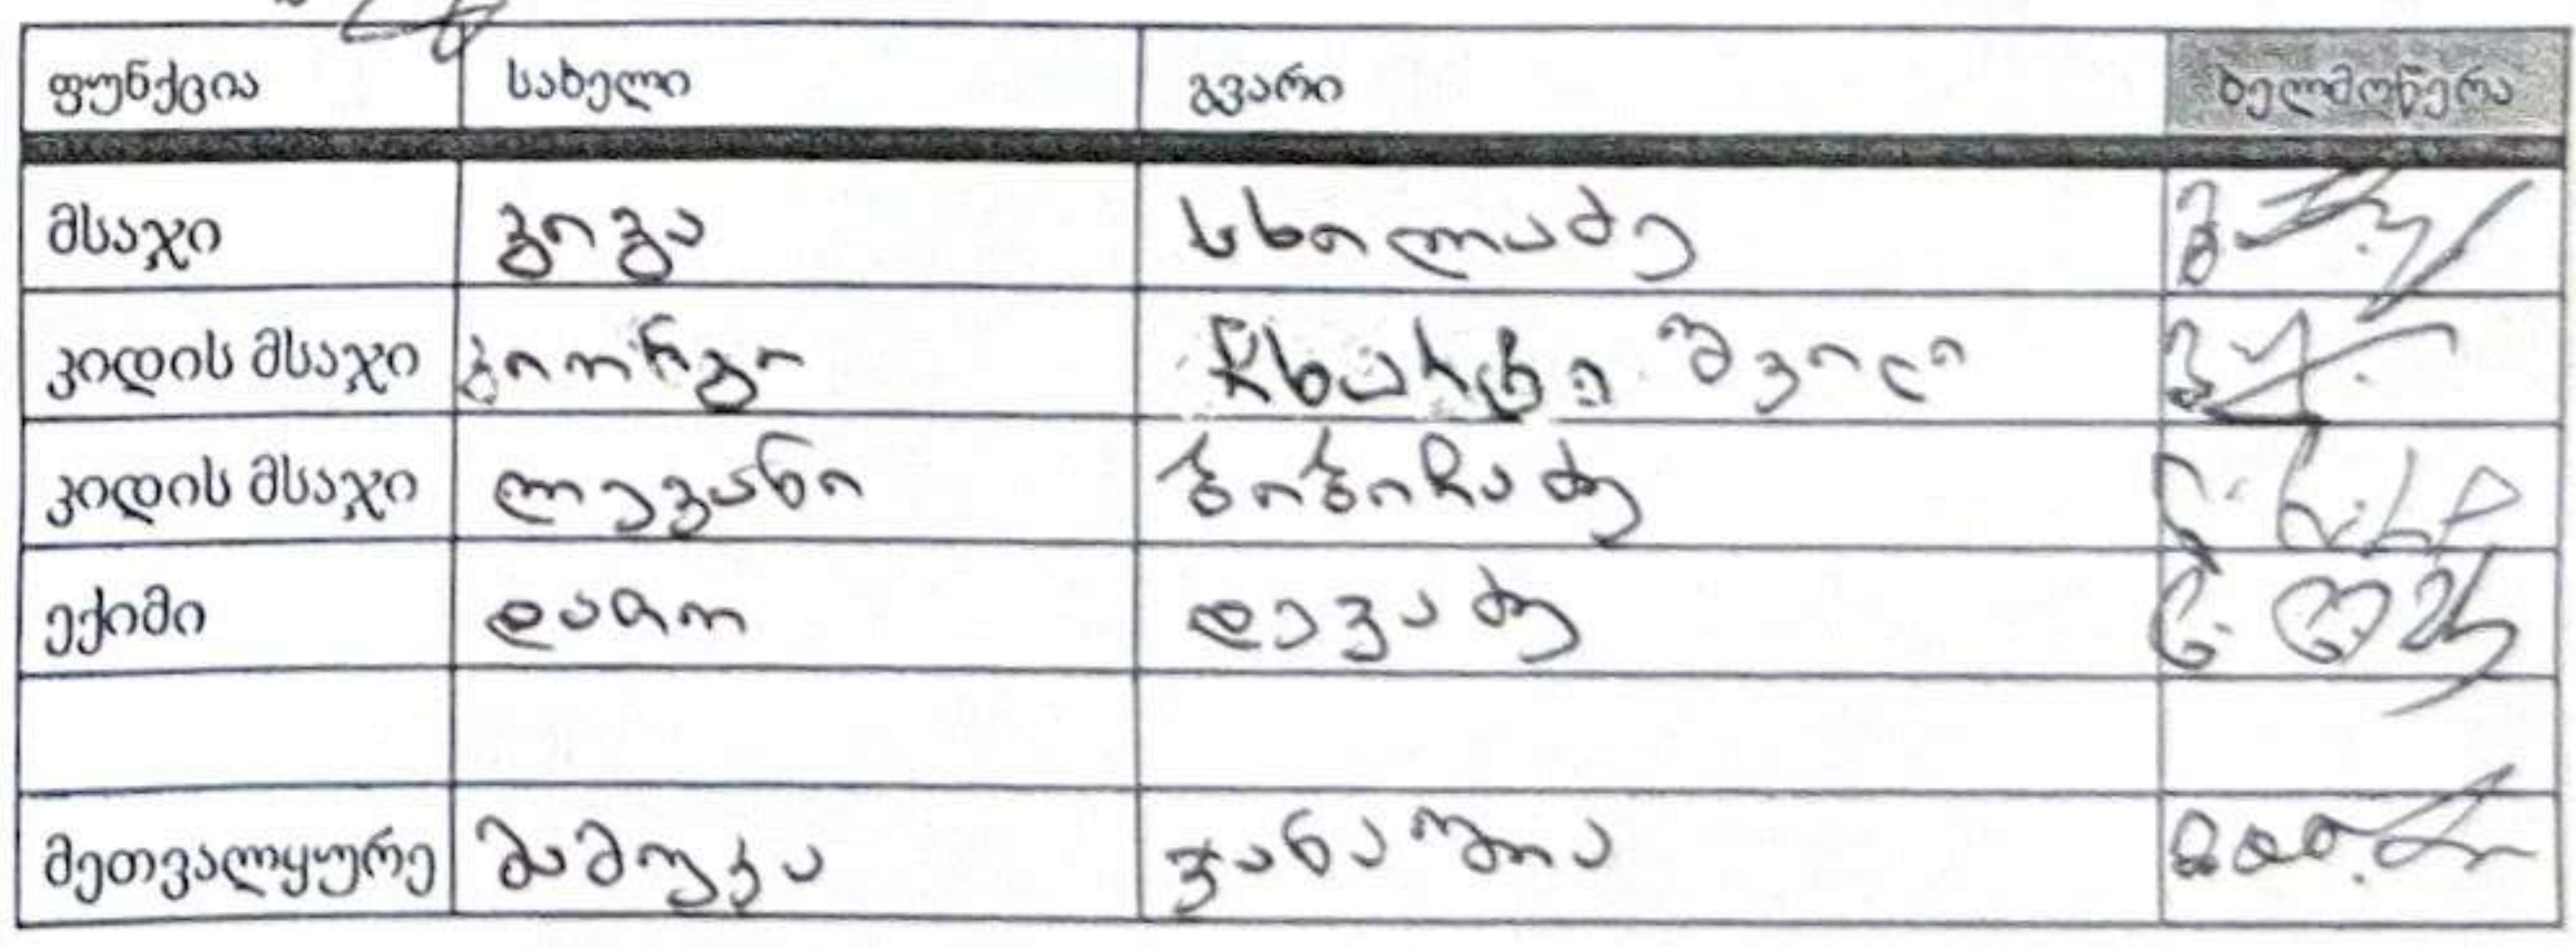 ფუნქცია სახელი გვარი ხელმოწერა
მსაჯი გოგა სხილაძე
კიდის მსაჯი გიორგი წხვარტეშვილი
კიდის მსაჯი ლევანი გიგინაძე
ექიმი დათო დევაძე
მეთვალყურე მამუკა ჯანაშია